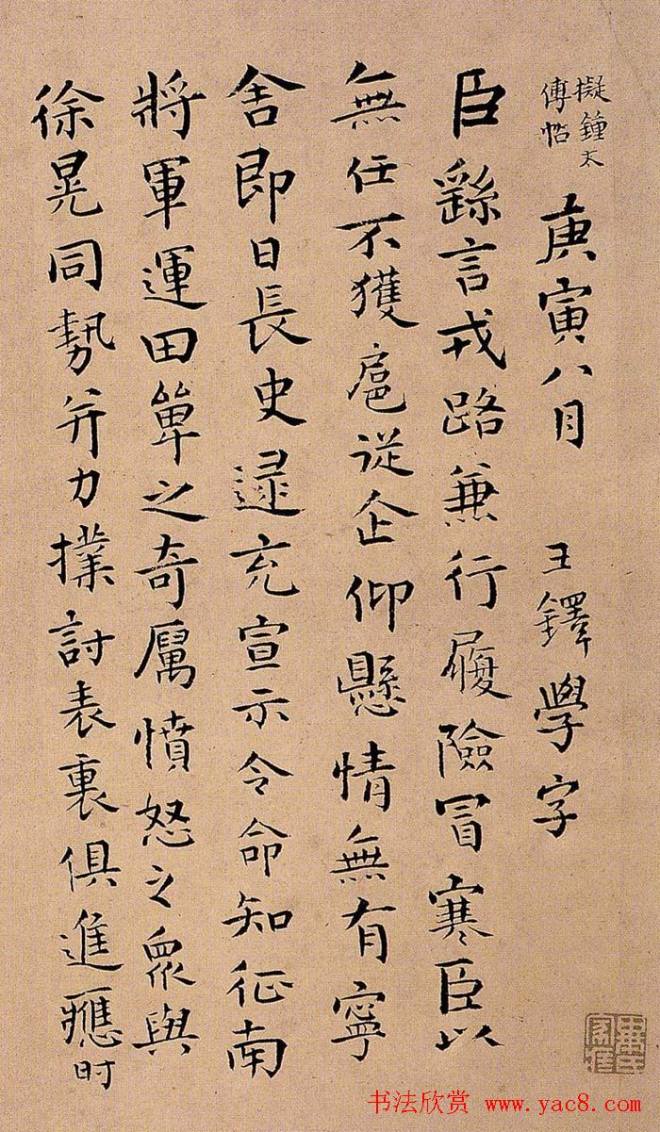 擬鍾太
傅帖
庚寅八月 王鐸學字
臣繇言戎路兼行履險冒寒臣以
無任不獲扈從企仰懸情無有寧
舍即日長史逯充宣示令命知征南
將軍運田單之奇厲憤怒之衆與
徐晃同勢并力撲討表裏俱進應时
书法欣赏 www.yac8.com